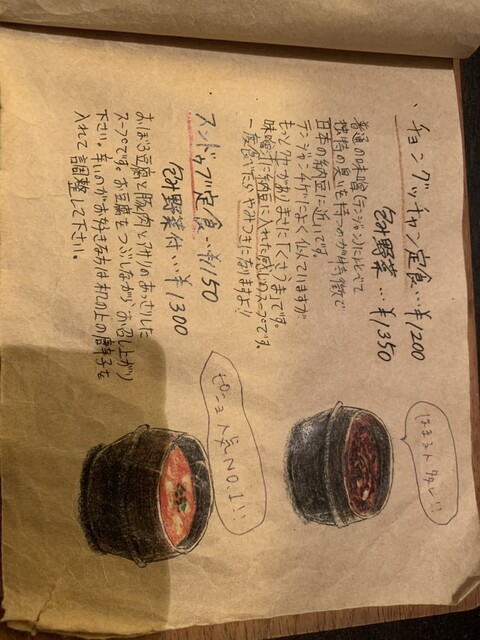 ・チョングッチャン定食…¥1200
包み野菜…¥1350
普通の味噌(テンジャン)に比べて
独特の臭いを持つのが特徴で
日本の納豆に近いです。
テンジャンチゲによく似ていますが
もっとクセがありまさに「くさうま」です。
味噌汁に納豆を入れた感じのスープです。
一度食べたらやみつきになりますよ!!
はまる人 多し!!
スンドゥブ定食…¥1150
包み野菜付…¥1300
おぼろ豆腐と豚肉とアサリのあっさりした
スープです。お豆腐をつぶしながらお召し上がり
下さい。辛いのがお好きな方は机の上の唐辛子を
入れて調整して下さい。
人気NO.1!!